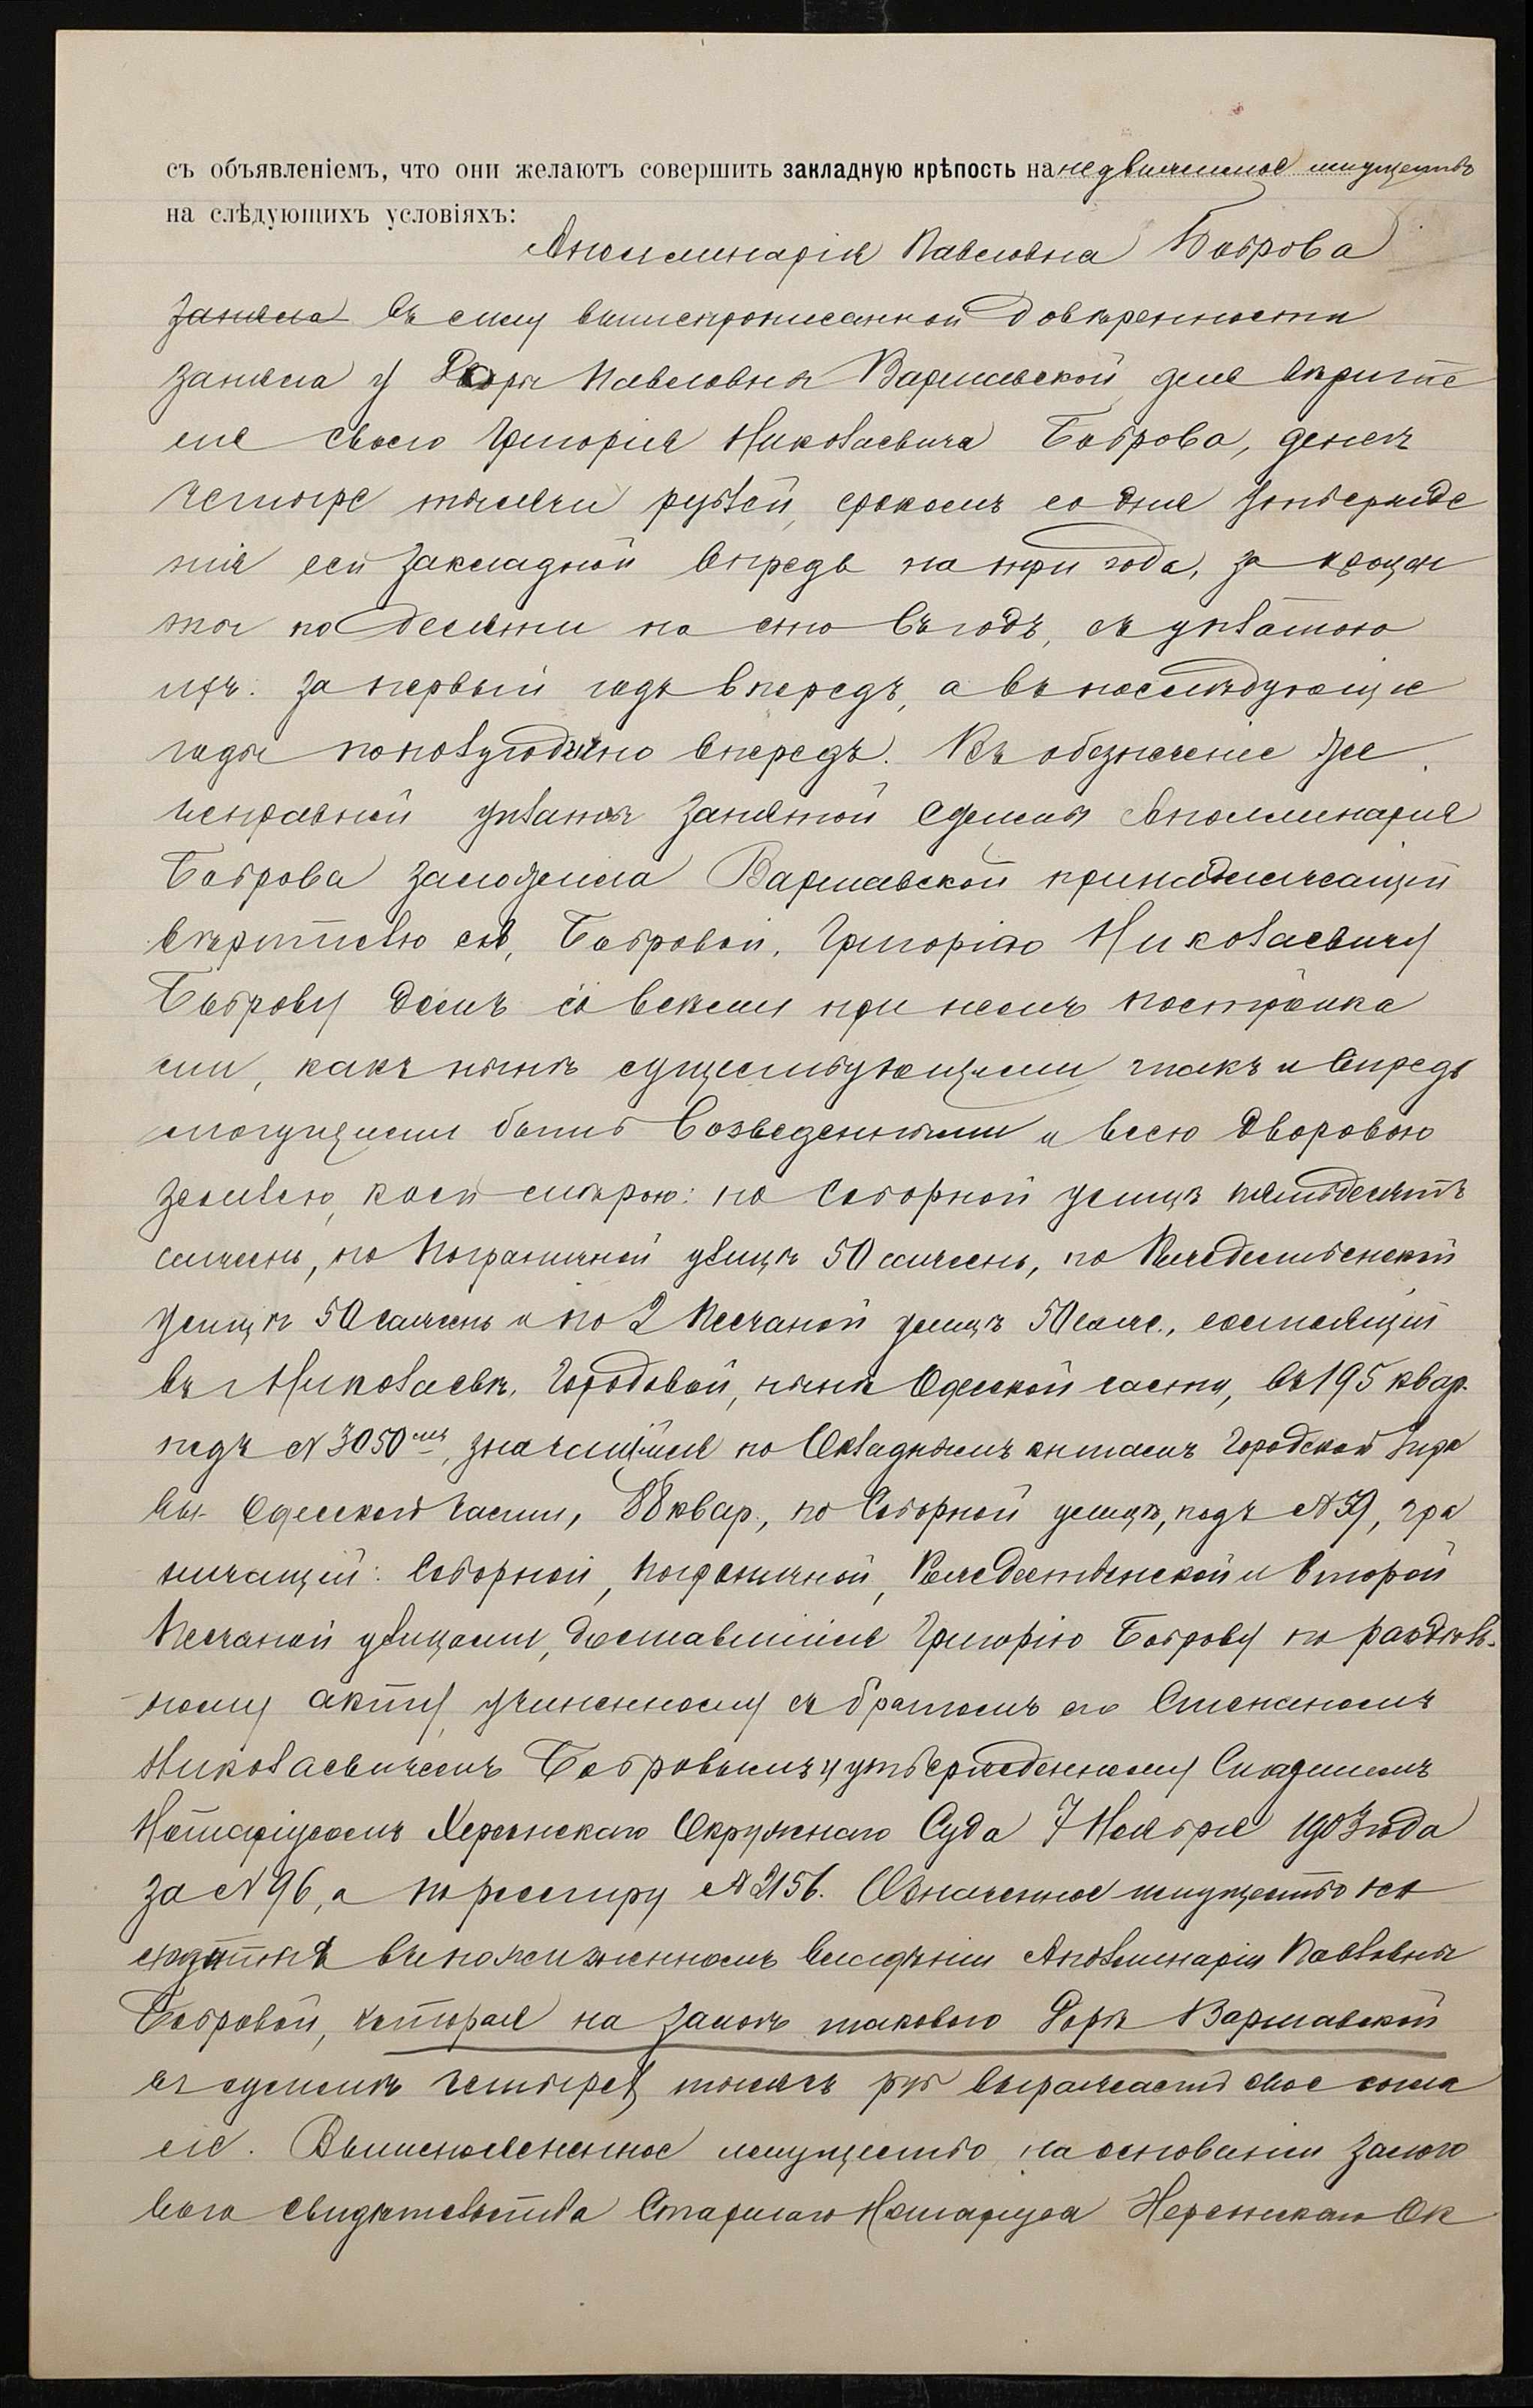 съ объявленіемъ, что они желаютъ совершить закладную крѣпость на недвижимое имущество
на слѣдующихъ условіяхъ:
Аполлинарія Павловна Боброва
заняла въ силу вышепрописанной довѣренности
заняла у Доры Павловны Варшавской, для вѣрите
ля своего Григорія Николаевича Боброва, денегъ
четыре тысячи рублей, срокомъ со дня утвержде
нія сей закладной впредь на три года, за процен
ты по десяти на сто въ годъ, съ уплатою
ихъ: за первый годъ впередъ, а въ послѣдующіе
годы по полугодично впередъ. Въ обезпеченіе же
исправной уплаты занятой суммы Аполлинарія
Боброва заложила Варшавской принадлежащій
вѣрителю ея, Бобровой, Григорію Николаевичу
Боброву домъ со всѣми при немъ постройка
ми, какъ нынѣ существующими такъ и впредь
могущими быть возведенными и всею дворовою
землею, коей мѣрою: по Соборной улицѣ пятьдесятъ
сажень, по Пограничной улицѣ 50 сажень, по Рождественской
улицѣ 50 сажень и по 2 Песчаной улицѣ 50 саж., состоящій
въ г. Николаевѣ, Городовой, нынѣ Одесской части, въ 195 квар.
подъ № 3050мъ, значащійся по Окладнымъ книгамъ Городской Упра
вы Одесской части, 88 квар., по Соборной улицѣ, подъ № 39, гра
ничащій: Соборной, Пограничной, Рождественской и второй
Песчаной улицами, доставшійся Григорію Боброву по раздѣль-
ному акту, учиненному съ братомъ его Степаномъ
Николаевичемъ Бобровымъ и утвержденному Старшимъ
Нотаріусомъ Херсонскаго Окружнаго Суда 7 Ноября 1903 года
за № 96, а по реестру № 2156. Означенное имущество на
ходится въ пожизненномъ владѣніи Аполлинаріи Павловны
Бобровой, которая на залогъ таковаго Дорѣ Варшавской
въ суммѣ четырехъ тысячъ руб выражаетъ свое согла
сіе. Вышепоясненное имущество, на основаніи залого
ваго свидѣтельства Старшаго Нотаріуса Херсонскаго Ок